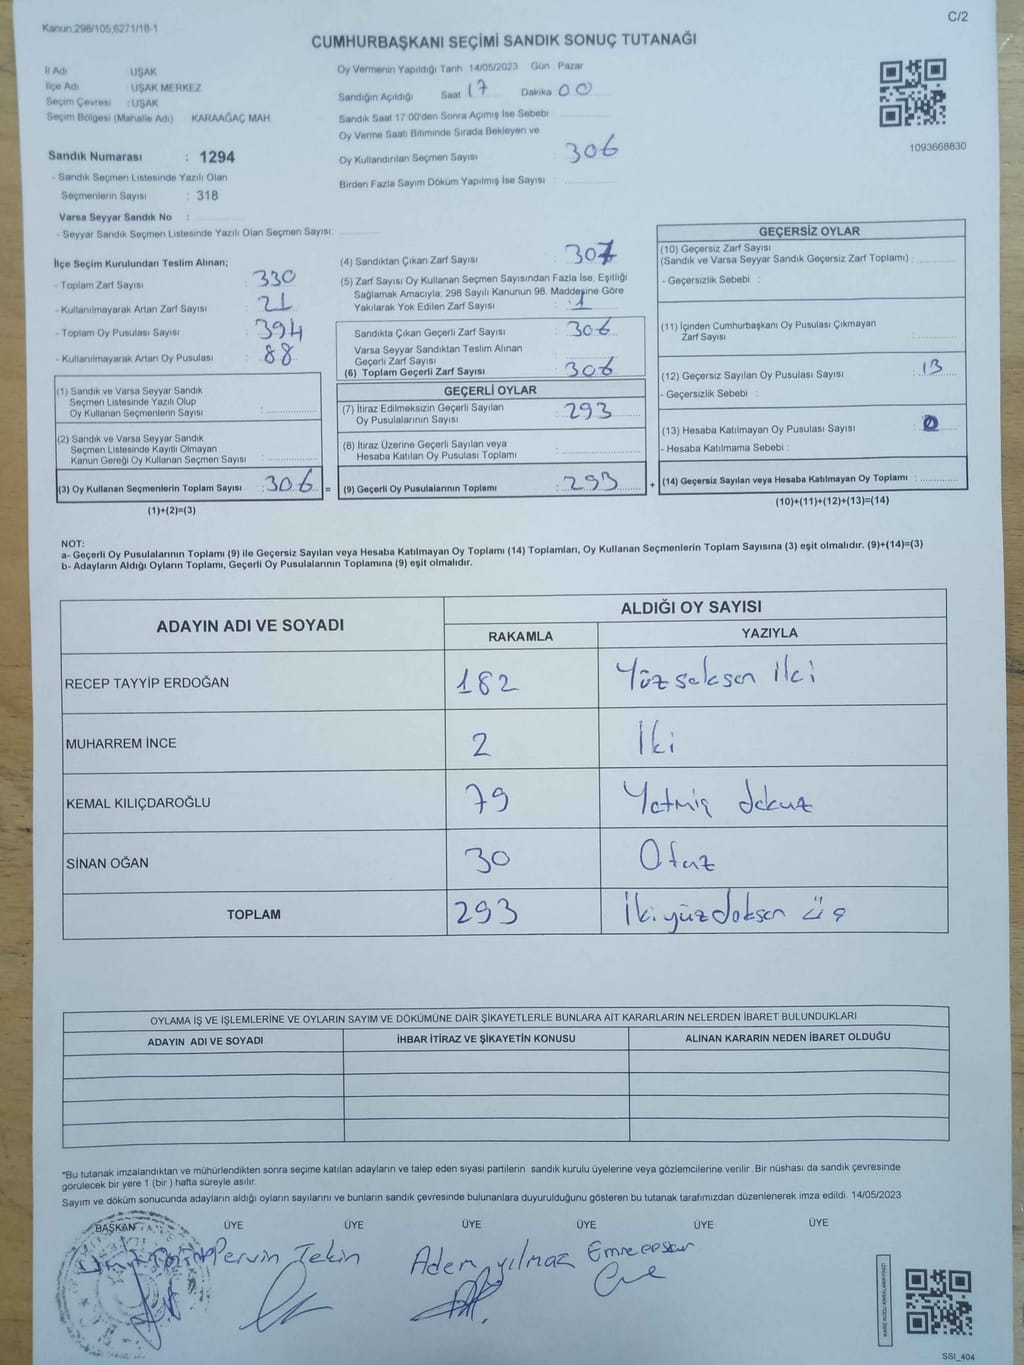 Kanun:298/105,6271/18-1
C/2
CUMHURBAŞKANI SEÇİMİ SANDIK SONUÇ TUTANAĞI
İl Adı UŞAK
İlçe Adı UŞAK MERKEZ
Seçim Çevresi : UŞAK
Seçim Bölgesi (Mahalle Adı) KARAAĞAÇ MAH.
Oy Vermenin Yapıldığı Tarih 14/05/2023 Gün Pazar
Sandığın Açıldığı Saat 17 Dakika 00
Sandık Saat 17:00'den Sonra Açımış İse Sebebi
Oy Verme Saati Bitiminde Sırada Bekleyen ve
Oy Kullandırılan Seçmen Sayısı : 306
Birden Fazla Sayım Döküm Yapılmış İse Sayısı :
1093668830
Sandık Numarası : 1294
- Sandık Seçmen Listesinde Yazılı Olan
Seçmenlerin Sayısı : 318
Varsa Seyyar Sandık No :
- Seyyar Sandık Seçmen Listesinde Yazılı Olan Seçmen Sayısı:
İlçe Seçim Kurulundan Teslim Alınan;
- Toplam Zarf Sayısı : 330
- Kullanılmayarak Artan Zarf Sayısı : 21
- Toplam Oy Pusulası Sayısı : 394
- Kullanılmayarak Artan Oy Pusulası : 88
(1) Sandık ve Varsa Seyyar Sandık
Seçmen Listesinde Yazılı Olup
Oy Kullanan Seçmenlerin Sayısı :
(2) Sandık ve Varsa Seyyar Sandık
Seçmen Listesinde Kayıtlı Olmayan
Kanun Gereği Oy Kullanan Seçmen Sayısı :
(3) Oy Kullanan Seçmenlerin Toplam Sayısı : 306 =
(1)+(2)=(3)
(4) Sandıktan Çıkan Zarf Sayısı : 307
(5) Zarf Sayısı Oy Kullanan Seçmen Sayısından Fazla İse, Eşitliği
Sağlamak Amacıyla; 298 Sayılı Kanunun 98. Maddesine Göre
Yakılarak Yok Edilen Zarf Sayısı : 1
Sandıkta Çıkan Geçerli Zarf Sayısı : 306
Varsa Seyyar Sandıktan Teslim Alınan
Geçerli Zarf Sayısı
(6) Toplam Geçerli Zarf Sayısı : 306
GEÇERLİ OYLAR
(7) İtiraz Edilmeksizin Geçerli Sayılan
Oy Pusulalarının Sayısı : 293
(8) İtiraz Üzerine Geçerli Sayılan veya
Hesaba Katılan Oy Pusulası Toplamı :
(9) Geçerli Oy Pusulalarının Toplamı : 293 +
GEÇERSİZ OYLAR
(10) Geçersiz Zarf Sayısı
(Sandık ve Varsa Seyyar Sandık Geçersiz Zarf Toplamı) :
- Geçersizlik Sebebi :
(11) İçinden Cumhurbaşkanı Oy Pusulası Çıkmayan
Zarf Sayısı :
(12) Geçersiz Sayılan Oy Pusulası Sayısı : 13
- Geçersizlik Sebebi :
(13) Hesaba Katılmayan Oy Pusulası Sayısı : 0
- Hesaba Katılmama Sebebi :
(14) Geçersiz Sayılan veya Hesaba Katılmayan Oy Toplamı :
(10)+(11)+(12)+(13)=(14)
NOT:
a- Geçerli Oy Pusulalarının Toplamı (9) ile Geçersiz Sayılan veya Hesaba Katılmayan Oy Toplamı (14) Toplamları, Oy Kullanan Seçmenlerin Toplam Sayısına (3) eşit olmalıdır. (9)+(14)=(3)
b- Adayların Aldığı Oyların Toplamı, Geçerli Oy Pusulalarının Toplamına (9) eşit olmalıdır.
ADAYIN ADI VE SOYADI
ALDIĞI OY SAYISI
RAKAMLA YAZIYLA
RECEP TAYYİP ERDOĞAN 182 Yüzseksen iki
MUHARREM İNCE 2 İki
KEMAL KILIÇDAROĞLU 79 Yetmiş dokuz
SİNAN OĞAN 30 Otuz
TOPLAM 293 İkiyüzdoksan üç
OYLAMA İŞ VE İŞLEMLERİNE VE OYLARIN SAYIM VE DÖKÜMÜNE DAİR ŞİKAYETLERLE BUNLARA AİT KARARLARIN NELERDEN İBARET BULUNDUKLARI
ADAYIN ADI VE SOYADI İHBAR İTİRAZ VE ŞİKAYETİN KONUSU ALINAN KARARIN NEDEN İBARET OLDUĞU
*Bu tutanak imzalandıktan ve mühürlendikten sonra seçime katılan adayların ve talep eden siyasi partilerin sandık kurulu üyelerine veya gözlemcilerine verilir .Bir nüshası da sandık çevresinde
görülecek bir yere 1 (bir ) hafta süreyle asılır.
Sayım ve döküm sonucunda adayların aldığı oyların sayılarını ve bunların sandık çevresinde bulunanlara duyurulduğunu gösteren bu tutanak tarafımızdan düzenlenerek imza edildi. 14/05/2023
BAŞKAN ÜYE ÜYE ÜYE ÜYE ÜYE ÜYE
Pervin Tekin Adem yılmaz Emre
KARE KODU KARALAMAYINIZ!
SSI_404